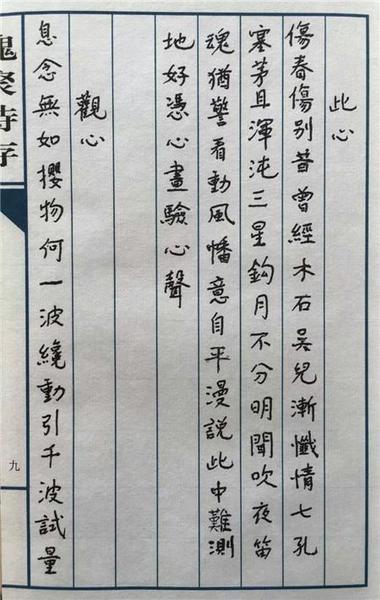 此心
傷春傷别昔曾經木石吳兒漸懺情七孔
塞茅且渾沌三星鈎月不分明聞吹夜笛
魂猶警看動風幡意自平漫說此中難測
地好憑心畫驗心聲
觀心
息念無如攖物何一波纔動引千波試量
槐聚詩存
九